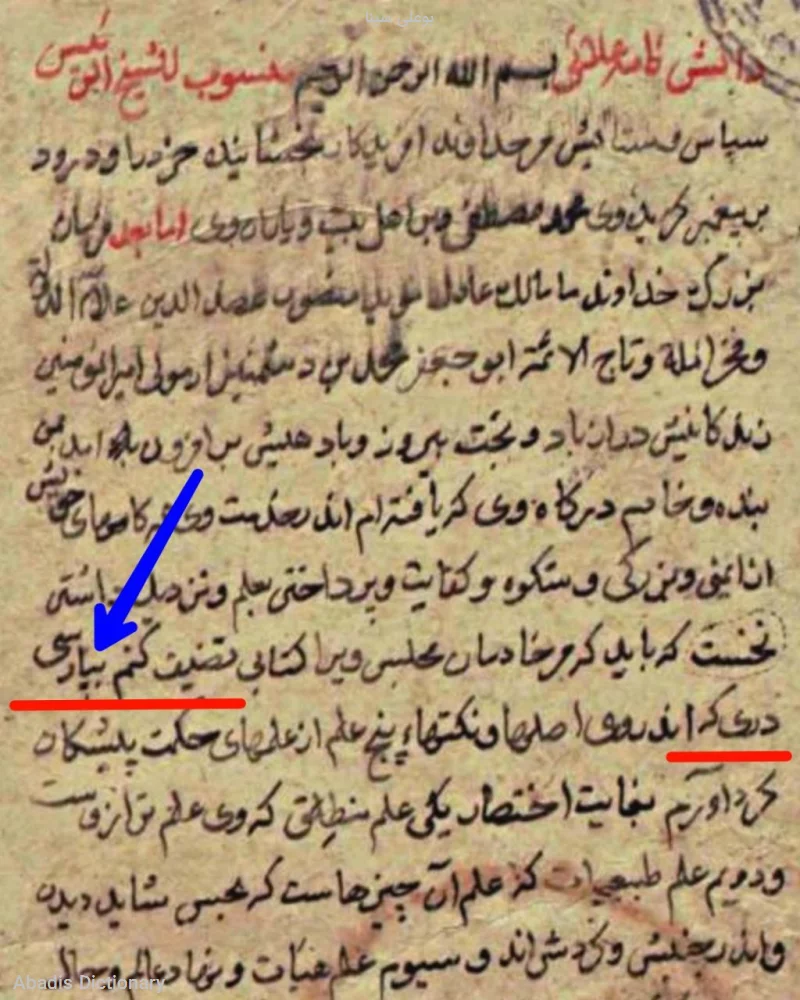 بوعلی سینا
دانش نامه علائی بسم الله الرحمن الرحیم منسوب للشیخ الرئیس
سپاس و ستایش مر خداوند افریدکار بخشاینده خرد را و درود
بر پیغمبر کزیده وی محمد مصطفی و بر اهل بیت و یاران وی اما بعد فرمان
بزرک خداوند ما ملک عادل موید منصور عضد الدین علاء الدوله
و فخر الملة و تاج الائمة ابو جعفر محمد بن دشمنزیار مولی امیر المومنین
زندکانیش دراز باد و بخت پیروز و پادهشیش بر افزون باد امد بمن
بنده و خادم درکاه وی که یافته ام اندر خدمت وی همه کامهای خویش
از ایمنی و بزرکی و شکوه و کفایت و پرداختن بعلم و نزدیک داشتن
نخست که باید که مر خادمان مجلس ویرا کتابی تصنیف کنم بپارسی
دری که اندر وی اصلها و نکتهاء پنج علم از علمهای حکمت پیشنکان
کرد اورم بغایت اختصار یکی علم منطق که وی علم ترازوست
و دویم علم طبیعیات که علم آن چیزهاست که بحس شاید دیدن
و اندر جنبش و کردش اند و سیوم علم هیات و نهاد عالم و حال
Abadis Dictionary